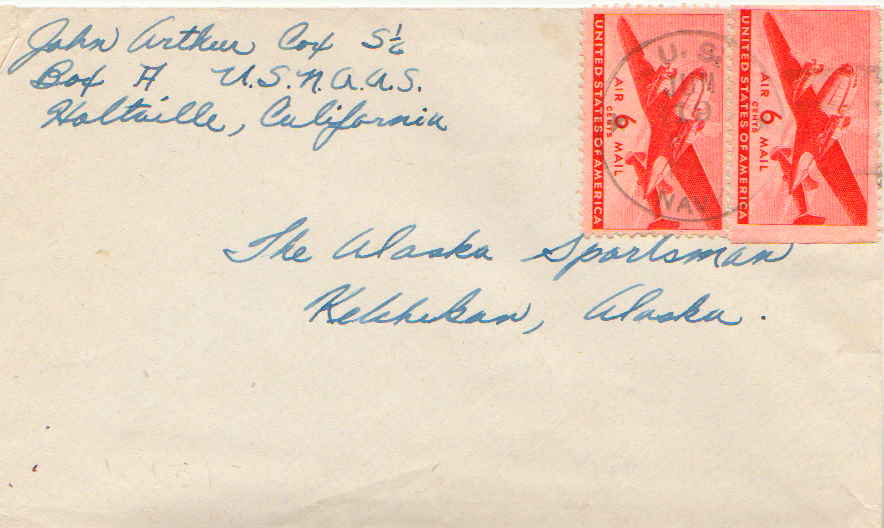 John Arthur Cox S 1/c
Box A U.S.N.A.A.S.
Holtville, California
The Alaska Sportsman
Ketchikan, Alaska.
UNITED STATES OF AMERICA
AIR 6 CENTS MAIL
UNITED STATES OF AMERICA
AIR 6 CENTS MAIL
U. S.
NAV